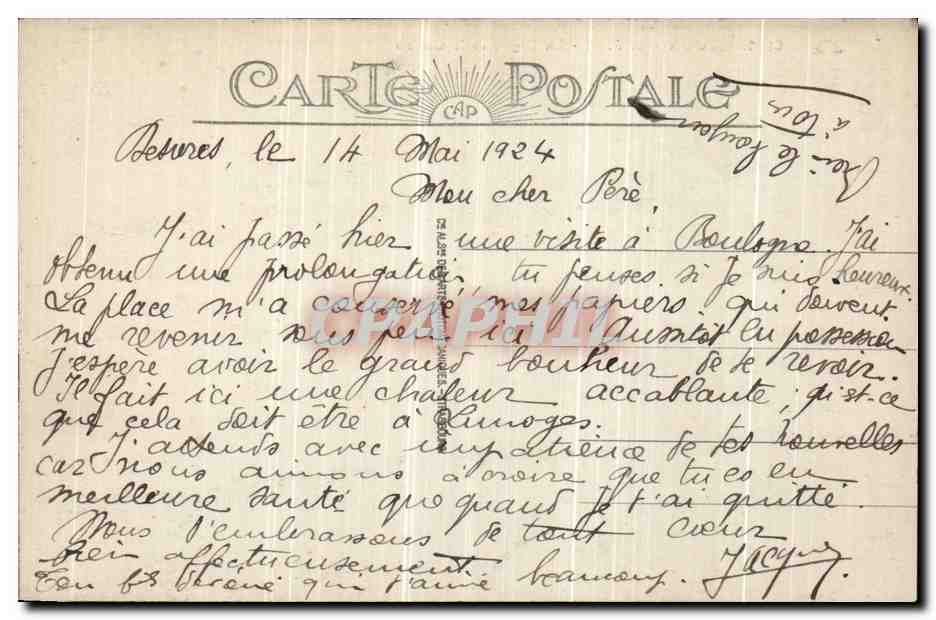 CARTE POSTALE
CAP
Desvres, le 14 Mai 1924
Mon cher Père,
J'ai passé hier une visite à Boulogne. J'ai
obtenu une prolongation, tu penses si je suis heureux.
La place m'a conservé mes papiers qui doivent
me revenir sous peu ici. Aussitôt en possession
j'espère avoir le grand bonheur de te revoir.
Il fait ici une chaleur accablante, qu'est-ce
que cela doit être à Limoges.
J'attends avec impatience de tes nouvelles
car nous aimons à croire que tu es en
meilleure santé que quand je t'ai quitté.
Nous t'embrassons de tout cœur
bien affectueusement
Ton fs dévoué qui t'aime beaucoup. Jacques
à tous
CPAPHIL